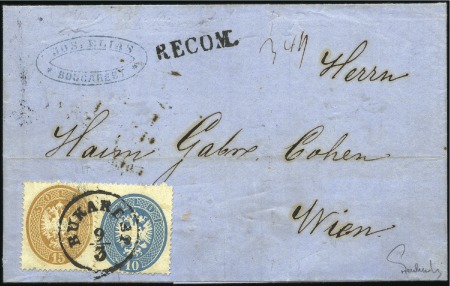 JOS. ELIAS
BUCCAREST
RECOM.
Herrn
Haim Gabr. Cohen
Wien
BUKAREST
9/3
15
10